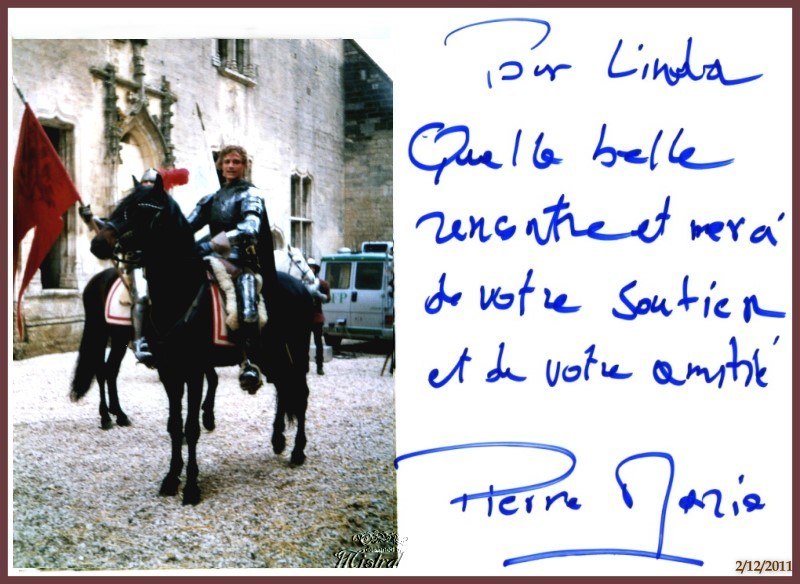 Pour Linda
Quelle belle
rencontre et merci
de votre soutien
et de votre amitié
Pierre Marie
FP
Mistral
2/12/2011